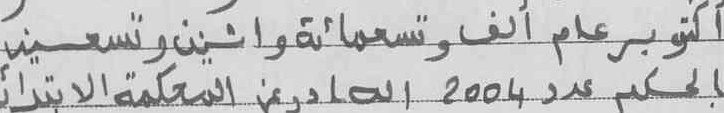 أكتوبر عام ألف وتسعمائة واثنين وتسعين
بالحكم عدد 2004 الصادر عن المحكمة الابتدائ